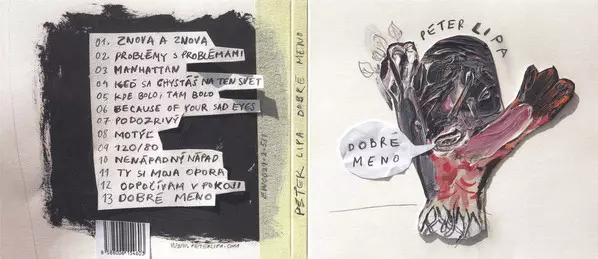 01. ZNOVA A ZNOVA
02. PROBLÉMY S PROBLÉMAMI
03 MANHATTAN
04 KEĎ SA CHYSTÁŠ NA TEN SVET
05 KDE BOLO, TAM BOLO
06 BECAUSE OF YOUR SAD EYES
07 PODOZRIVÝ
08 MOTÝĽ
09 120/80
10 NENÁPADNÝ NÁPAD
11 TY SI MOJA OPORA
12 ODPOČÍVAM V POKOJI
13 DOBRÉ MENO
WWW.PETERLIPA.COM
PETER LIPA DOBRÉ MENO
PETER LIPA
DOBRÉ
MENO